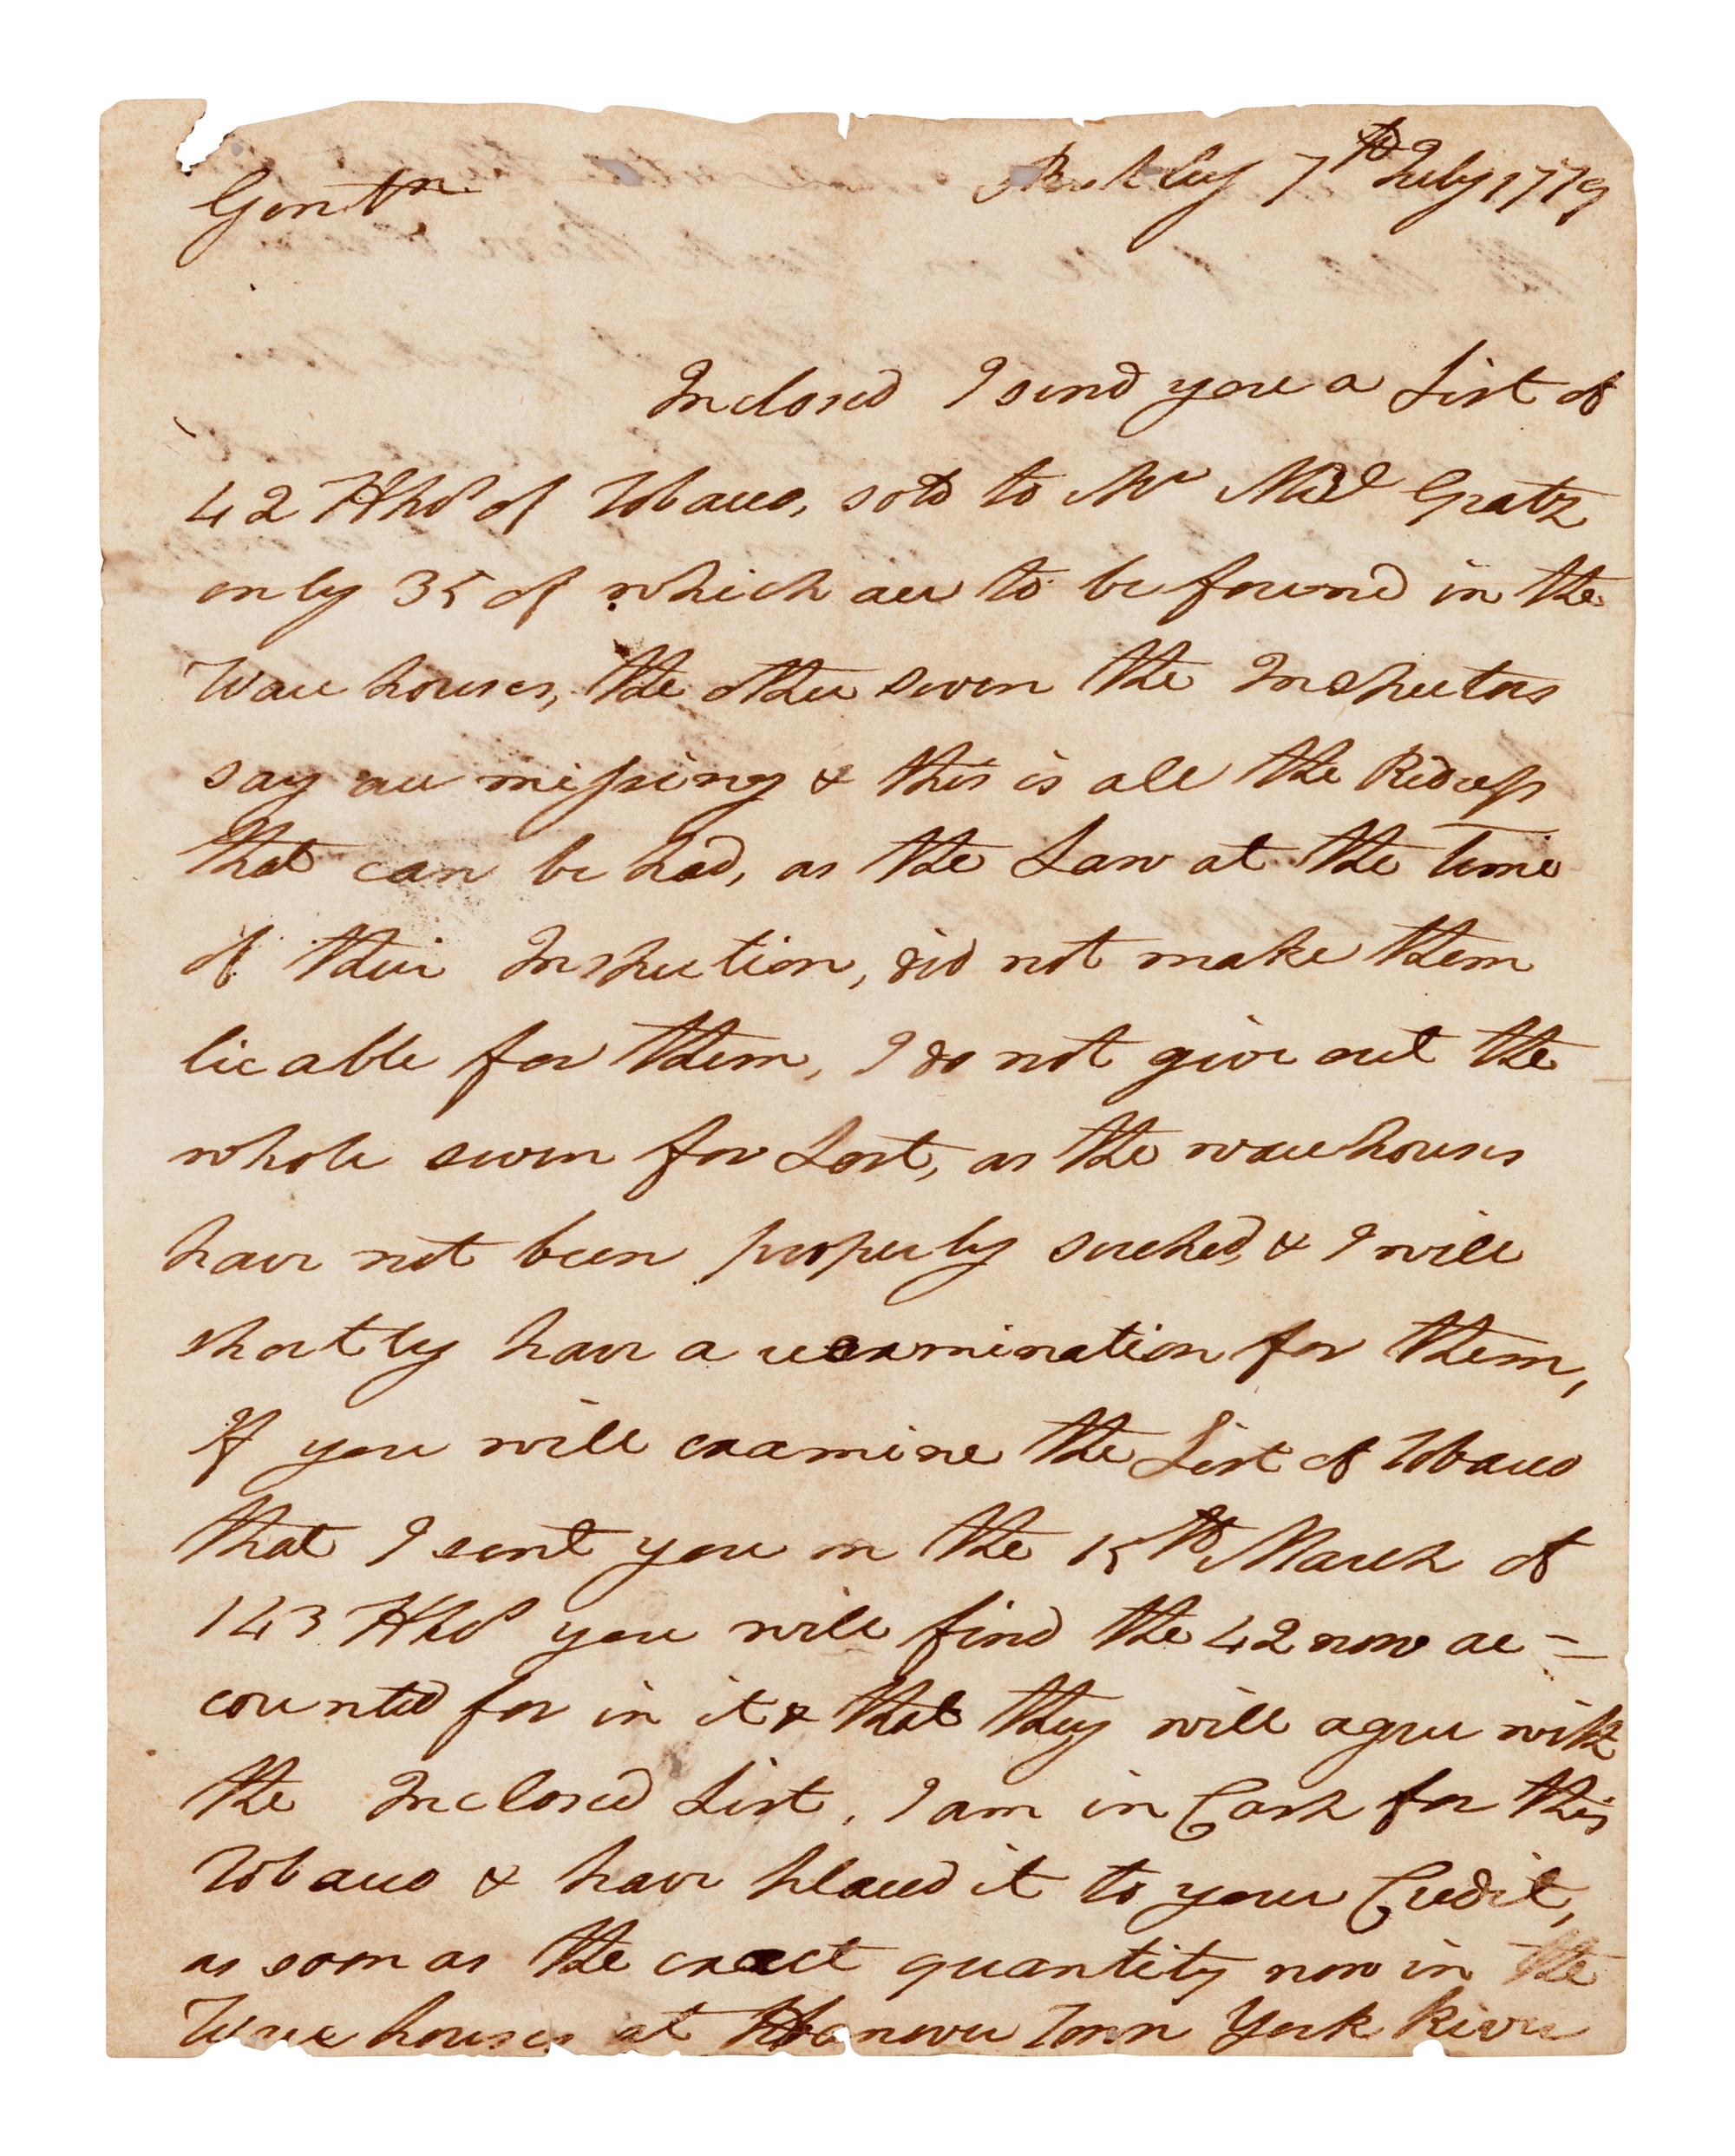 Berkley 7th July 1779
Gentn
Inclosed I send you a List of
42 Hhds of Tobacco, sold to Mr Micl Gratz
only 35 of which are to be found in the
Ware houses, the other seven the Inspectors
say are missing & this is all the Redress
that can be had, as the Law at the time
of their Inspection, did not make them
lieable for them, I do not give out the
whole seven for Lost, as the warehouses
have not been properly serched, & I will
shortly have a reexamination for them,
If you will examine the List of Tobacco
that I sent you on the 15th March of
143 Hhds you will find the 42 now ac=
counted for in it & that they will agree with
the Inclosed List, I am in Cash for this
Tobacco & have placed it to your Credit,
as soon as the exact quantity now in the
Ware houses at Hanover Town York River